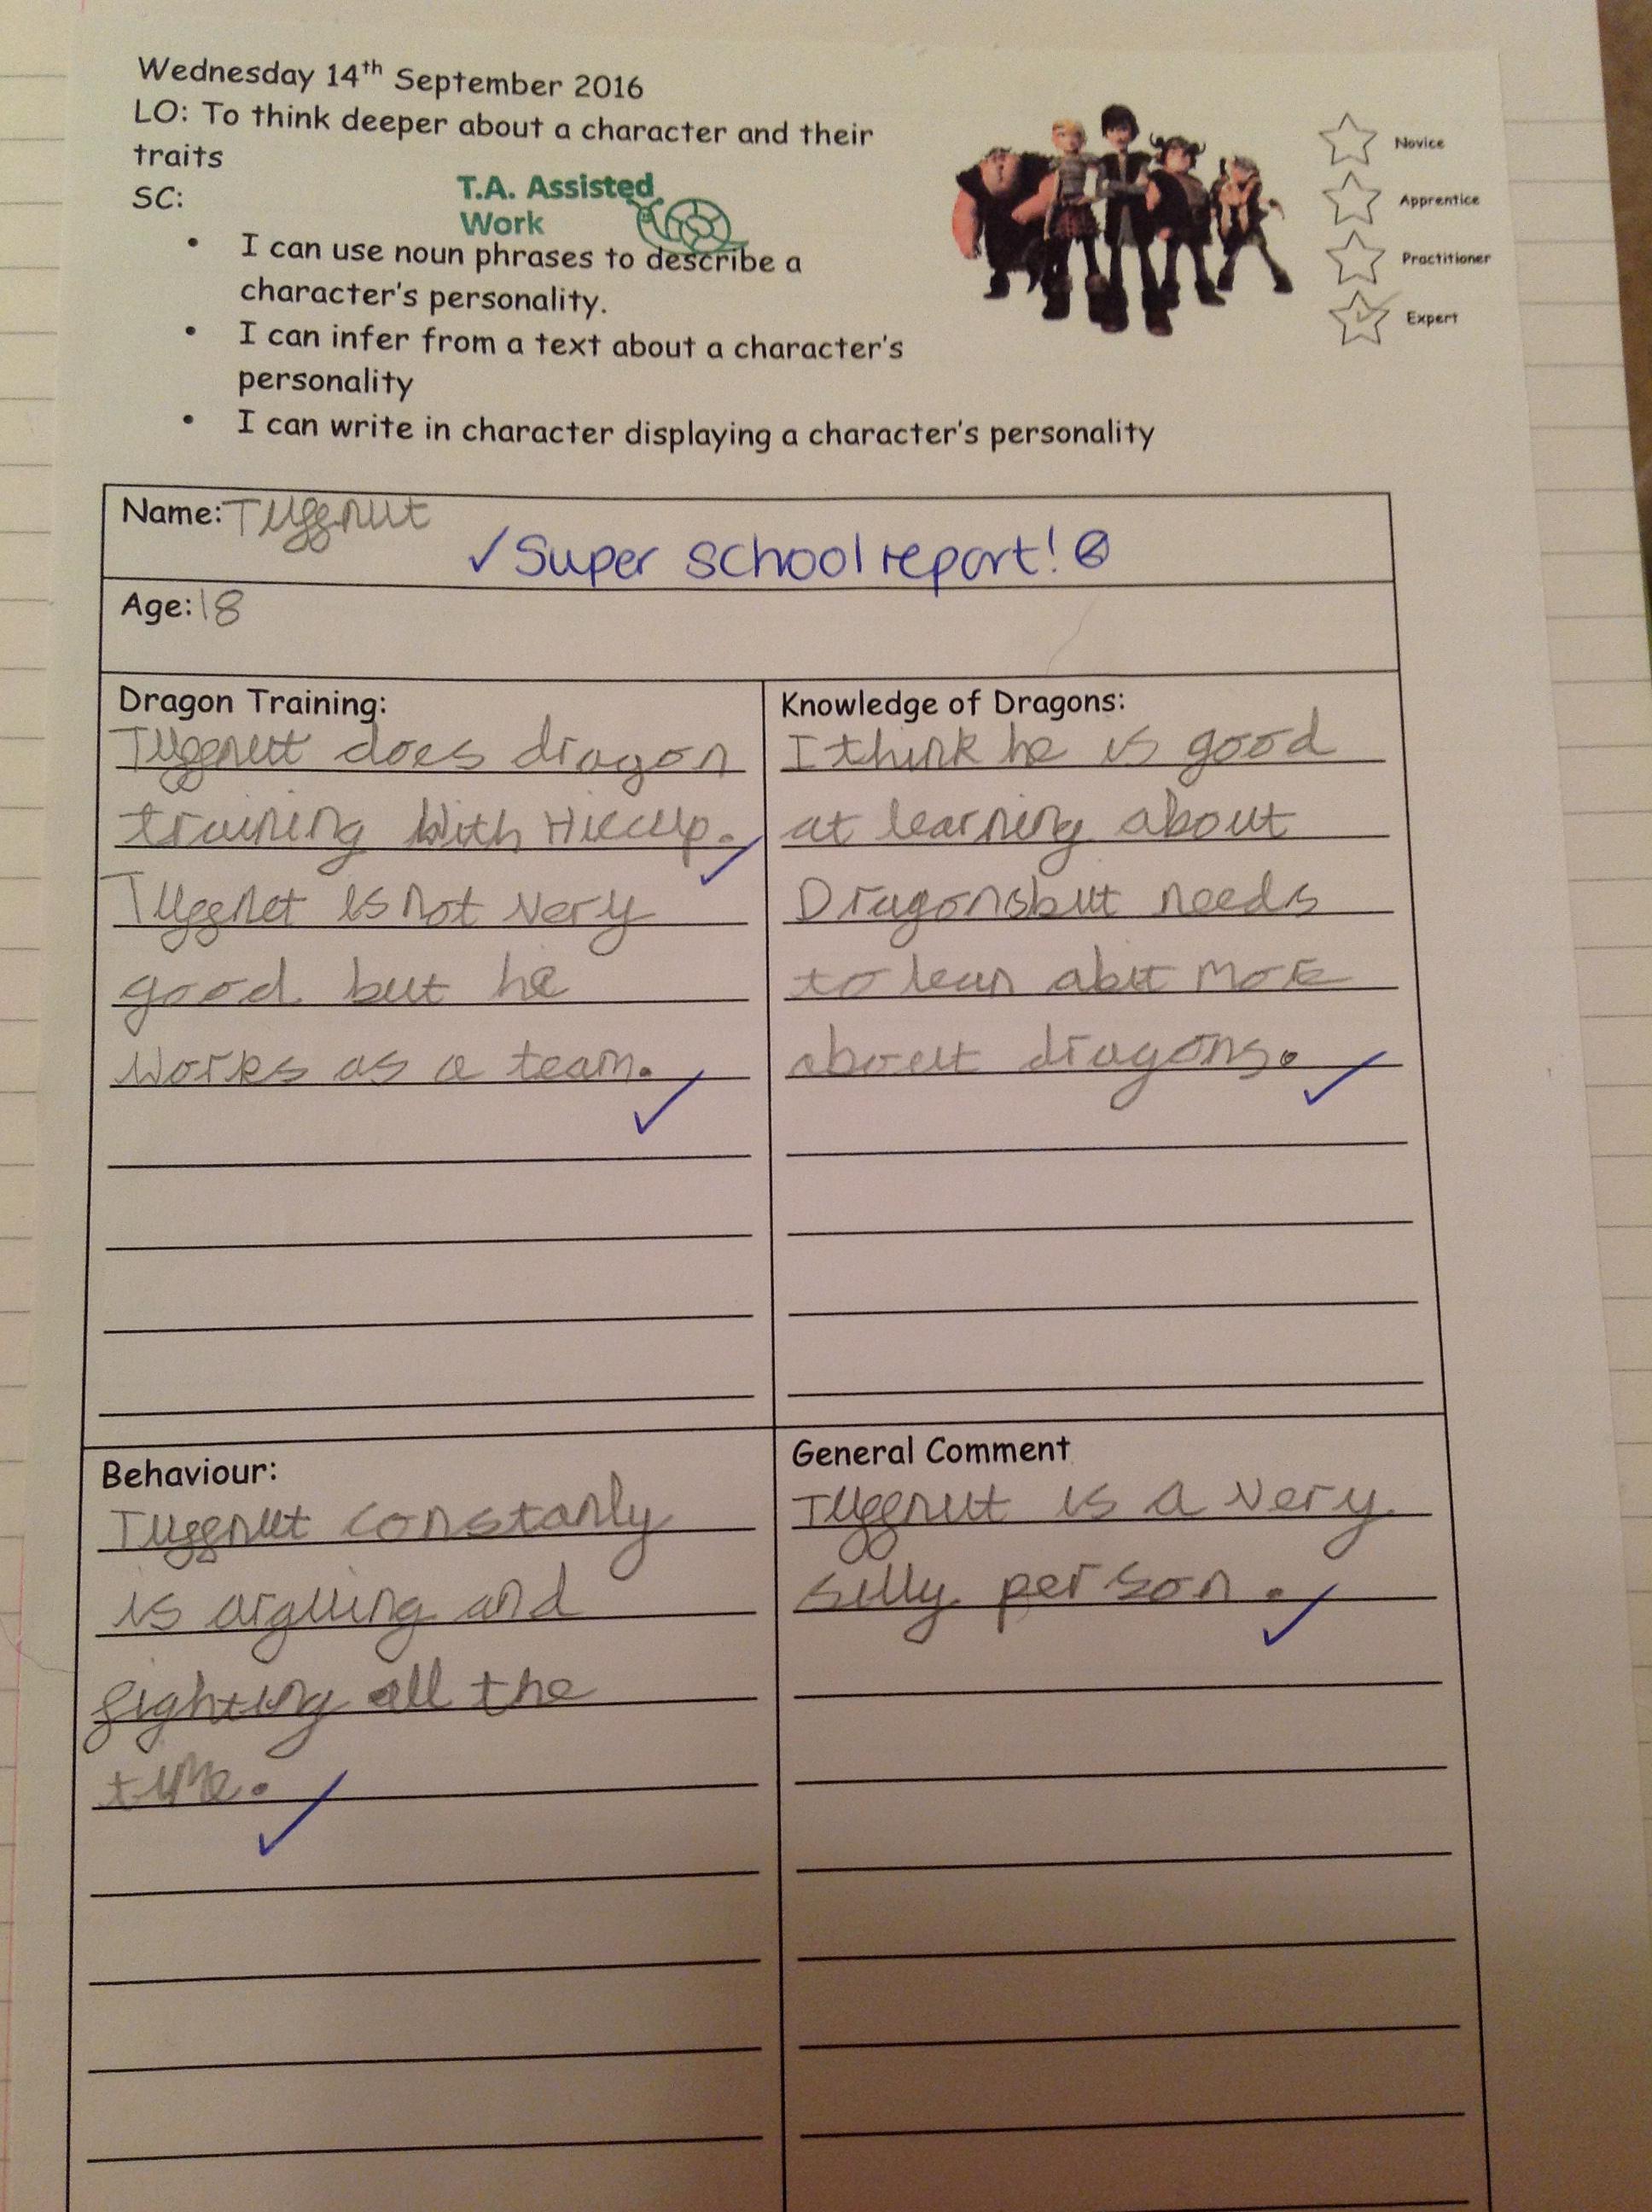 Wednesday 14th September 2016
LO: To think deeper about a character and their
traits
SC:
T.A. Assisted
Work
• I can use noun phrases to describe a
character's personality.
• I can infer from a text about a character's
personality
• I can write in character displaying a character's personality
Novice
Apprentice
Practitioner
Expert
Name: Tuggnut
✓ Super school report!
Age: 18
Dragon Training:
Tuggnut does dragon
training with Hiccup.
Tuggnet is not very
good but he
works as a team.
Knowledge of Dragons:
I think he is good
at learning about
Dragons but needs
to lean abut more
about dragons.
Behaviour:
Tuggnut constanly
is arguing and
fighting all the
time.
General Comment
Tuggnut is a very
silly person.